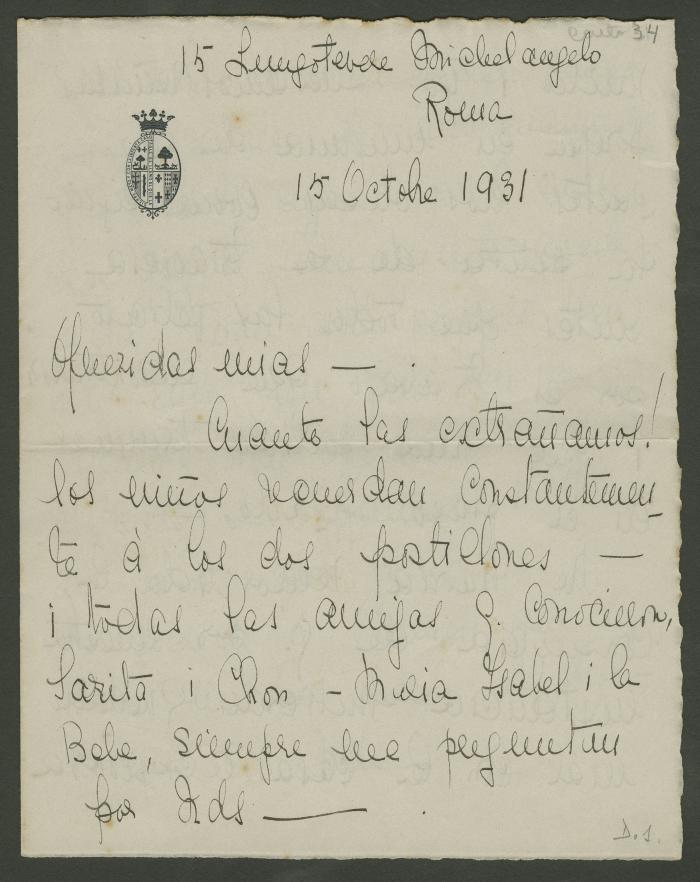 34
15 Lungotevere Michelangelo
Roma
15 Octobre 1931
Queridas mias — .
Cuanto las extrañamos!
los niños recuerdan constantemen-
te á los dos postillones —
i todas las amigas q. conocieron,
Sarita i Chon — Maria Isabel i la
Bebe, siempre me preguntan
por Uds — .
D.S.